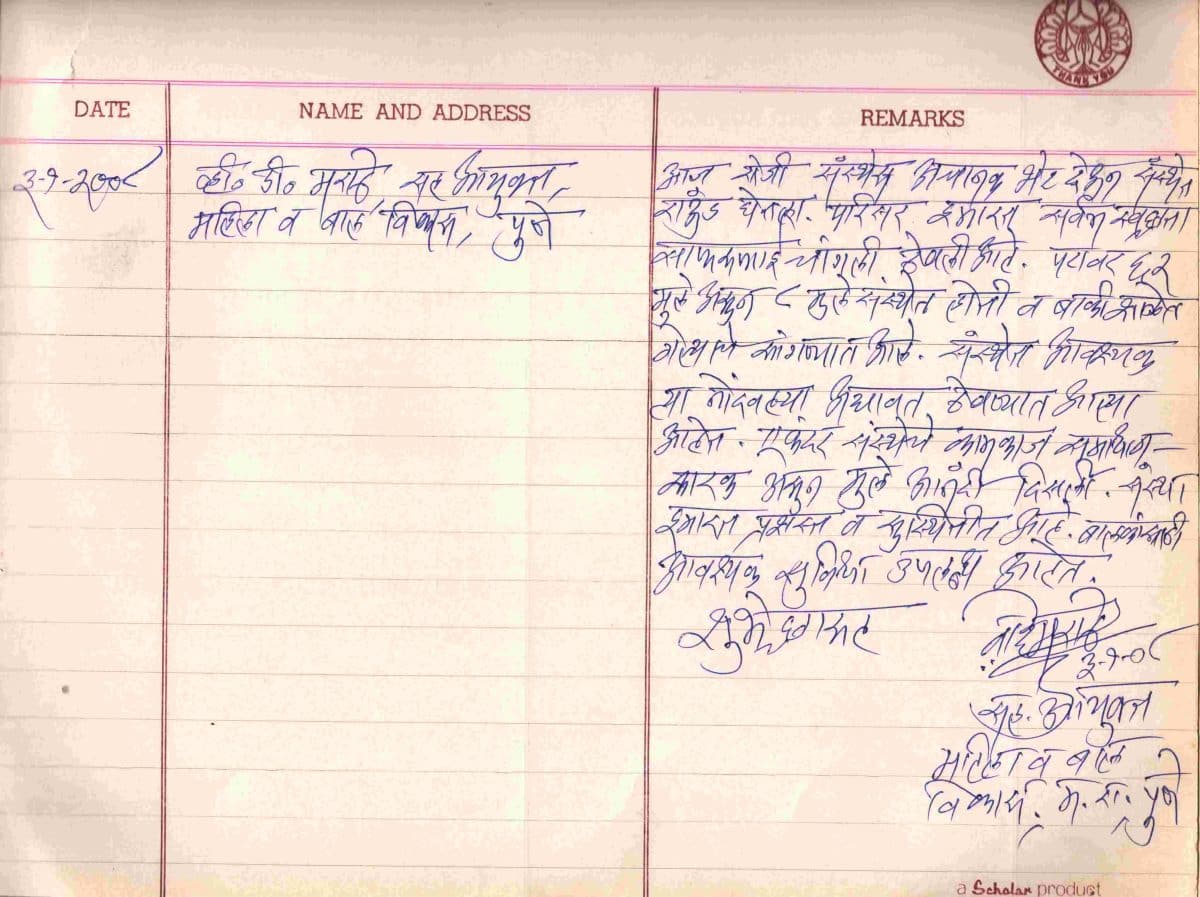 THANK YOU
DATE NAME AND ADDRESS REMARKS
३-१-२००८
व्ही. डी. मराठे, सह आयुक्त,
महिला व बाल विकास, पुणे
आज रोजी संस्थेस अचानक भेट देऊन संस्थेत
राऊंड घेतला. परिसर इमारत सर्वत्र स्वच्छता
साफसफाई चांगली ठेवली आहे. पटावर ६२
मुले असून ८ मुले संस्थेत होती व बाकी शाळेत
गेल्याचे सांगण्यात आले. संस्थेत आवश्यक
त्या नोंदवह्या अद्यावत ठेवण्यात आल्या
आहेत. एकंदर संस्थेचे कामकाज समाधान-
कारक असून मुले आनंदी दिसली. संस्था
इमारत प्रशस्त व सुस्थितीत आहे. बालकांसाठी
आवश्यक सुविधा उपलब्ध आहेत.
शुभेच्छासह
३-१-०८
सह. आयुक्त
महिला व बाल
विकास, म. रा. पुणे
a Scholar product